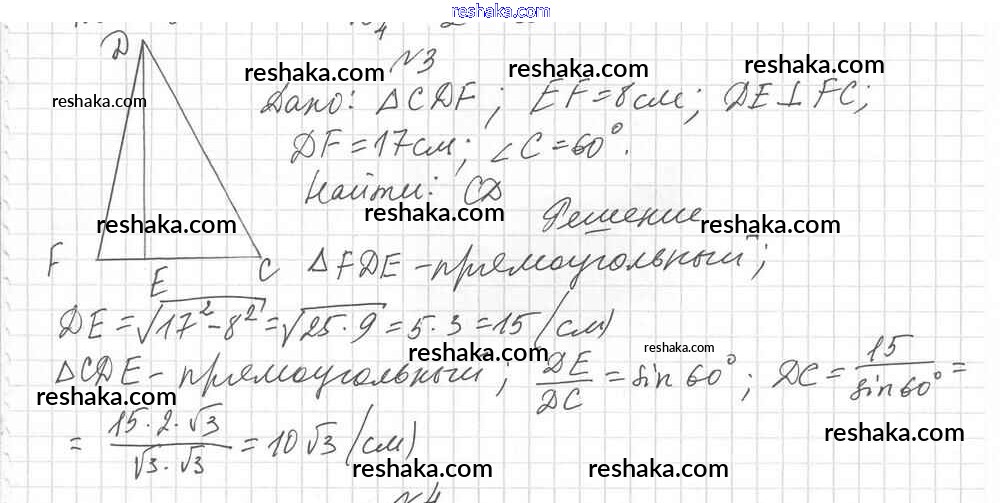 reshaka.com
N3
reshaka.com reshaka.com reshaka.com
reshaka.com
Дано: △CDF; EF=8см; DE⊥FC;
DF=17см; ∠C=60°.
Найти: CD
reshaka.com reshaka.com reshaka.com
Решение
D
F E C
△FDE-прямоугольный;
DE=√(17²-8²)=√(25·9)=5·3=15 (см)
reshaka.com reshaka.com
△CDE-прямоугольный; DE/DC=sin60°; DC=15/sin60°=
reshaka.com
=15·2·√3/√3·√3=10√3 (см)
reshaka.com reshaka.com reshaka.com
N4